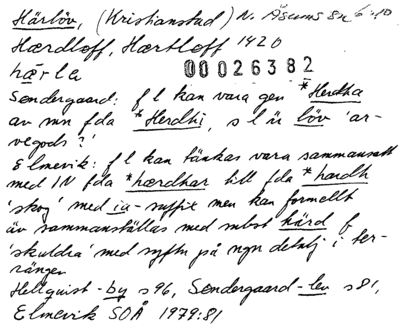 Härlöv, (Kristianstad) N. Åsums sn 6:10
Hærdløff, Hærtleff 1420
hä̀rla 00026382
Søndergaard: f l kan vara gen *Herdha
av mn fda *Herdhi, s l är löv 'ar-
vegods?'
Elmevik: f l kan tänkas vara sammansatt
med IN fda *hærdhar till fda *hardh
'skog' med ia-suffix men kan formellt
äv sammanställas med subst härd f
'skuldra' med syftn på ngn detalj i ter-
rängen
Hellquist -by s 96, Søndergaard -lev s 81,
Elmevik SOÅ 1979:81